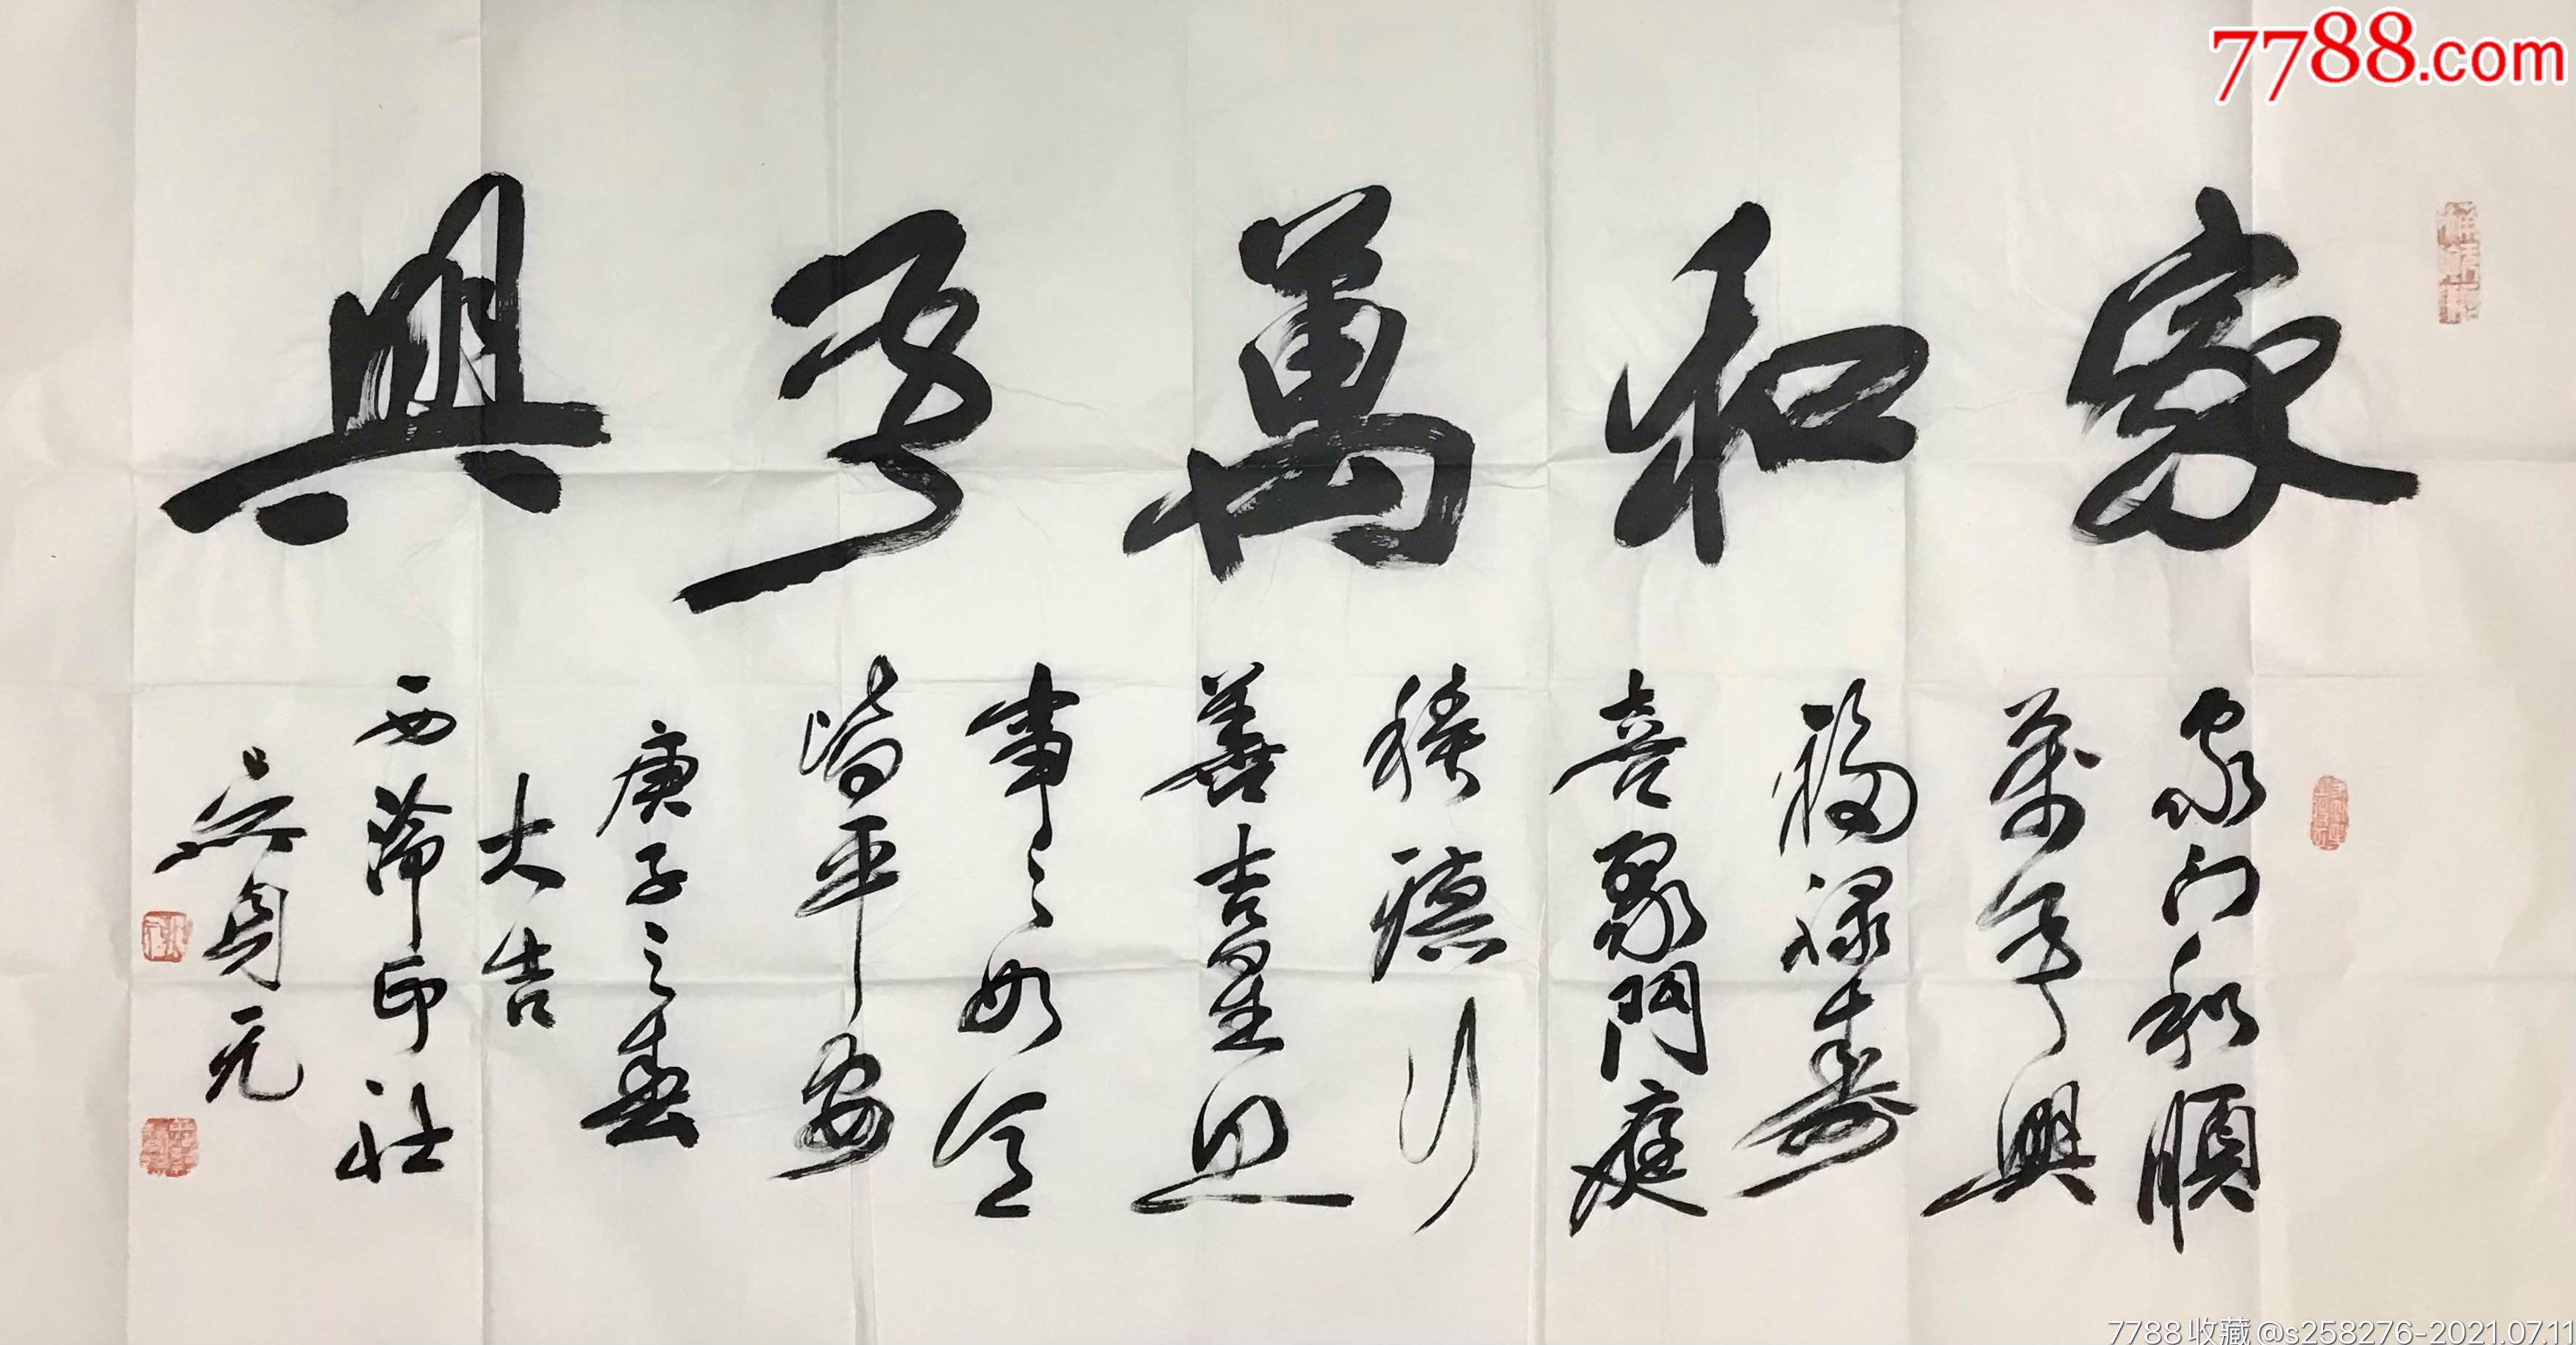 7788.com
家和萬事興
家门和順
萬事興
福禄壽
喜聚門庭
積德行
善吉星照
事之如意
皆平安
庚子之春
大吉
西泠印社
吴貞元
7788收藏@s258276-2021.07.11